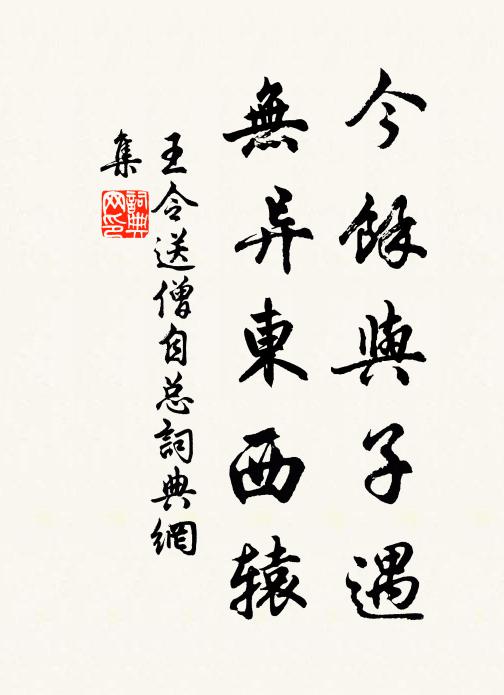 今餘與子遇
無异東西辕
王令送僧自总詞典網
集
詞典網印